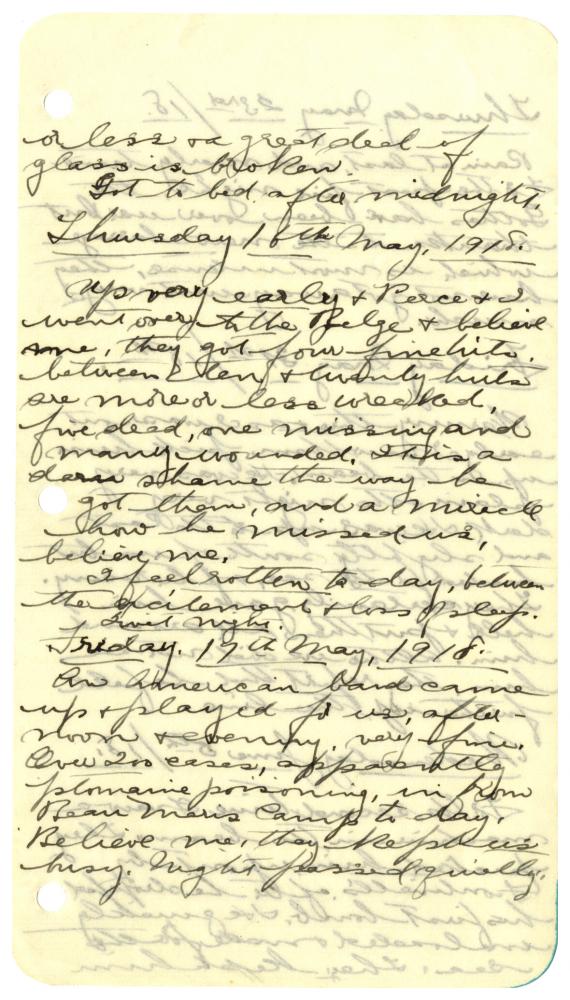 or less & a great deal of
glass is broken.
Got to bed after midnight.
Thursday 16th May, 1918.
Up very early & Perce & I
went over to the Belge & believe
me, they got four fine hits.
between ten & twenty huts
are more or less wrecked,
five dead, one missing and
many wounded. It is a
darn shame the way he
got them, and a miracle
how he missed us,
believe me.
I feel rotten to-day, between
the excitement & loss of sleep.
Quiet night.
Friday. 17th May, 1918.
An American band came
up & played for us, after-
noon & evening, very fine.
Over 200 cases, apparently
ptomaine poisoning, in from
Beau Marais Camp to day.
Believe me, they kept us
busy. Night passed quietly.